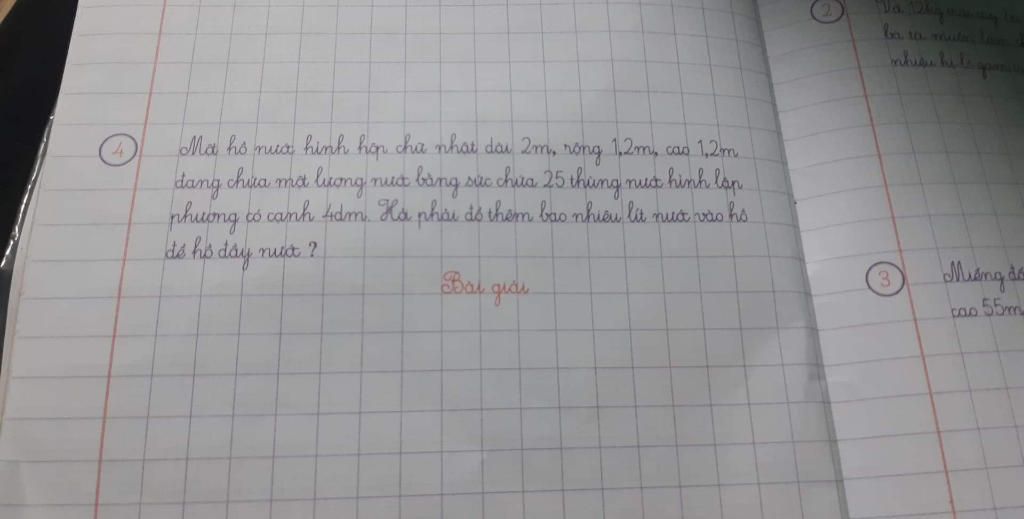 4
Một hồ nước hình hộp chữ nhật dài 2m, rộng 1,2m, cao 1,2m
đang chứa một lượng nước bằng sức chứa 25 thùng nước hình lập
phương có cạnh 4dm. Hỏi phải đổ thêm bao nhiêu lít nước vào hồ
để hồ đầy nước?
Bài giải
2
bà ta muốn làm
nhiêu ki lô gam
3
Miếng đấ
cao 55m